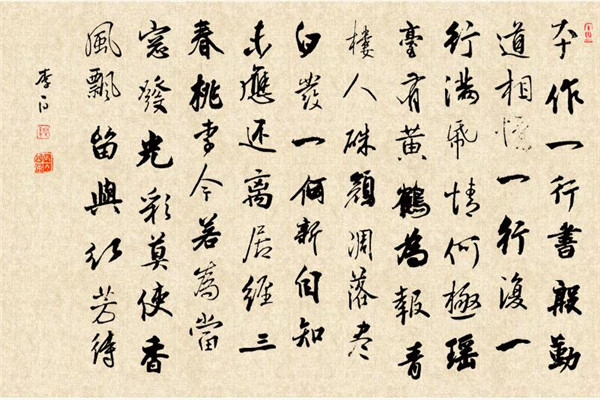 本作一行書殷勤
道相憶一行復一
行满紙情何極瑶
臺有黄鶴為報青
樓人硃顏凋落尽
白發一何新自知
未應还离居經三
春桃李今若為當
窓發光彩莫使香
風飄留與红芳待
李白